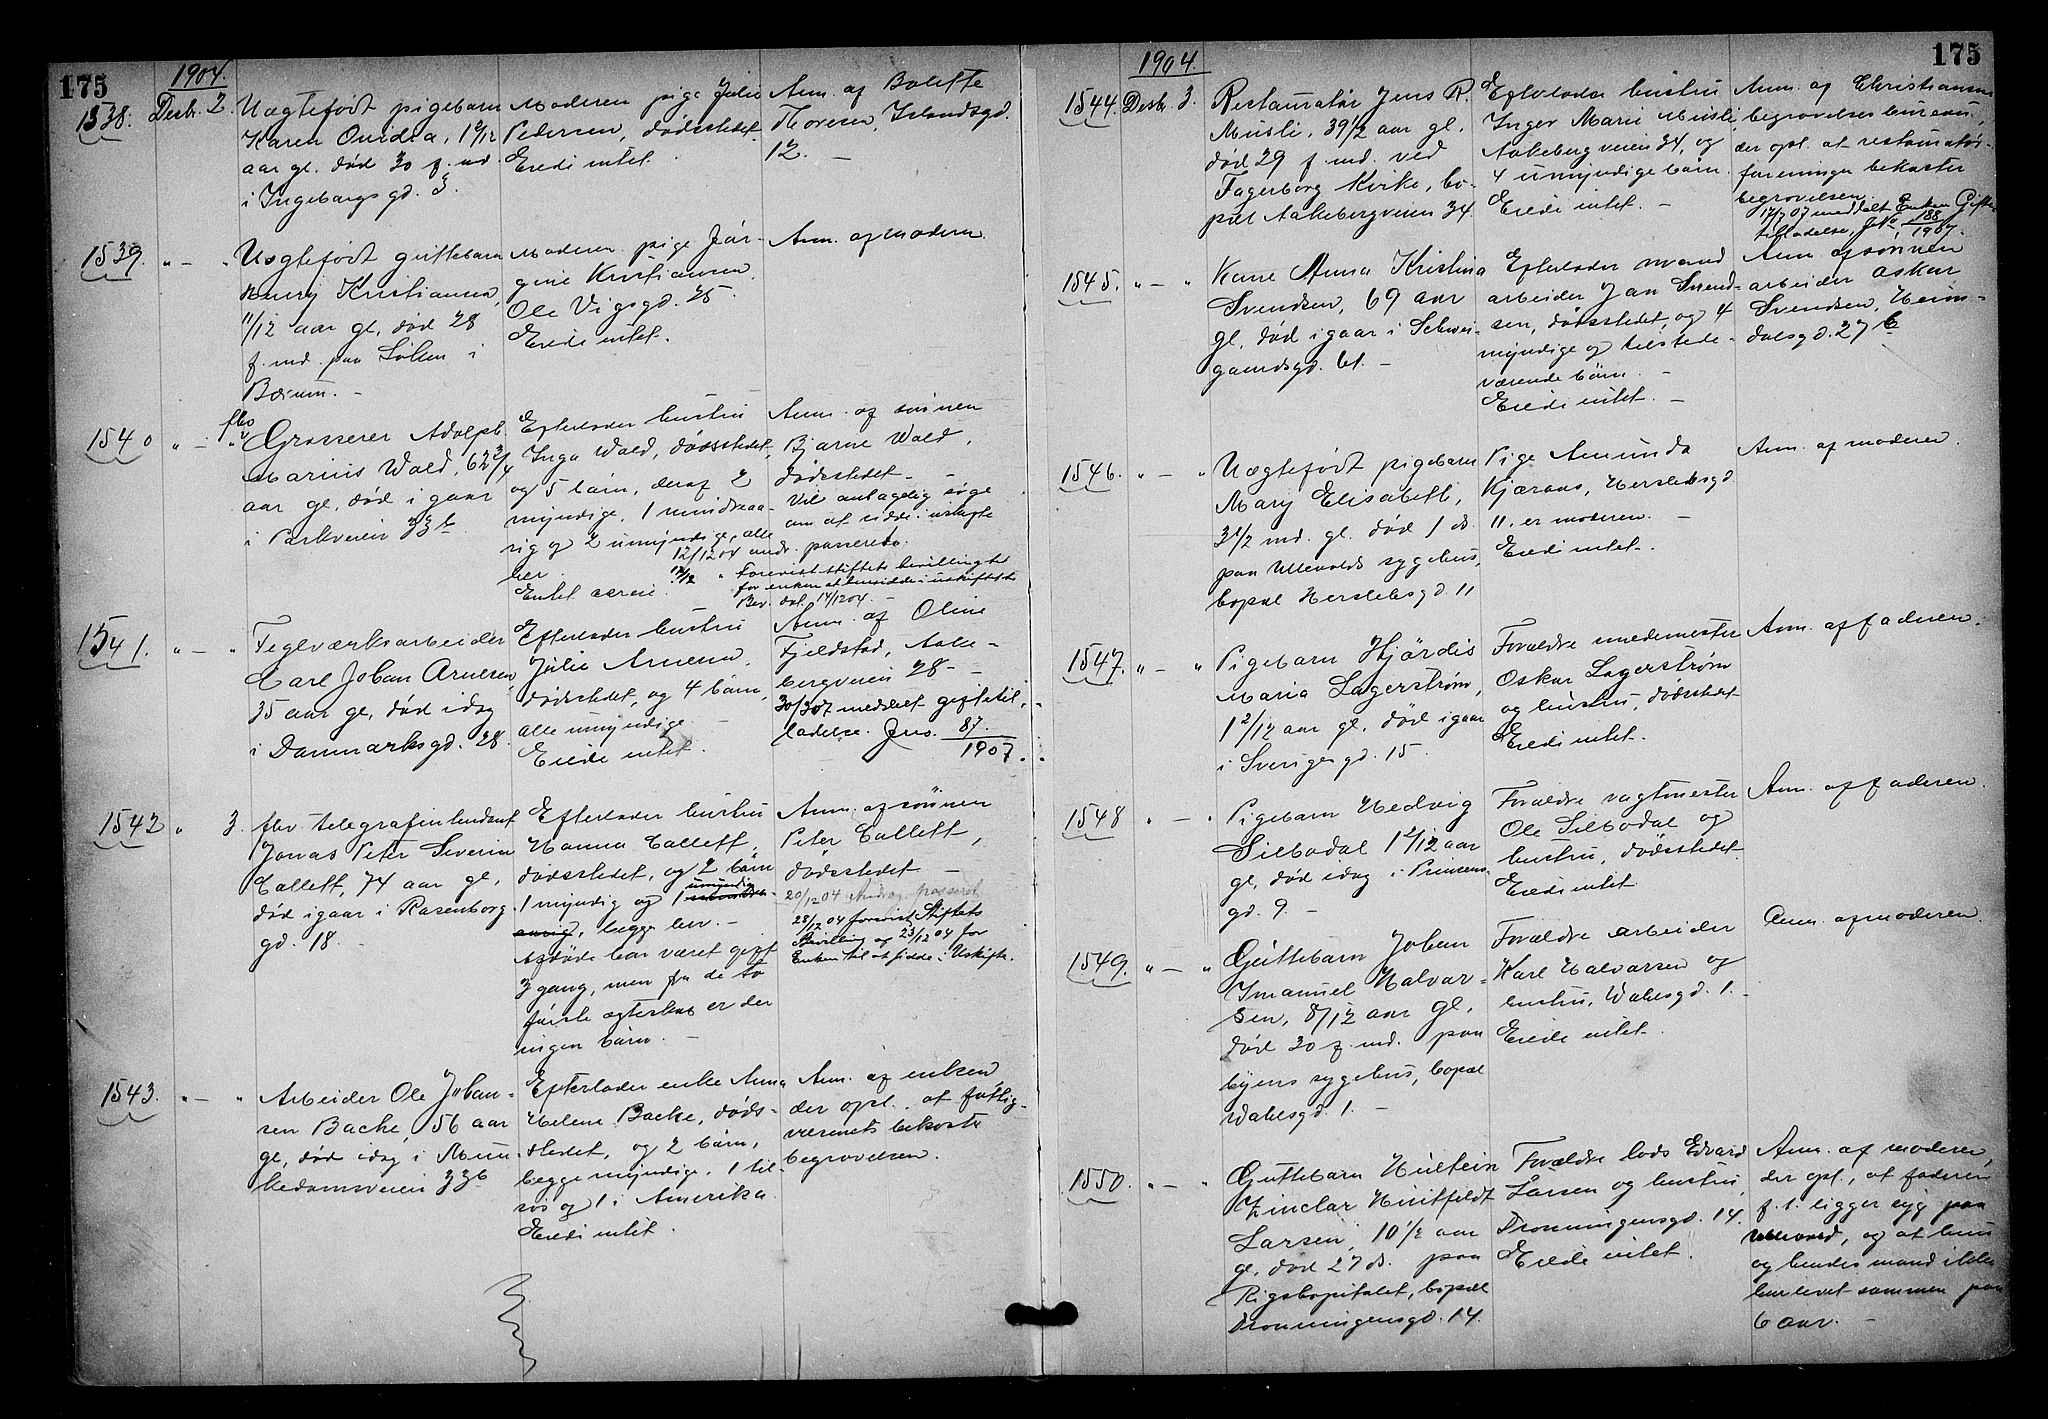 175
1904.
1538. Desbr. 2. Uægtefödt pigebarn
Karen Ouidia, 1 2/12
aar gl. död 30 f. md.
i Ingeborgsgd. 3.
Moderen pige Julie
Pedersen, dödsstedet.
Eiede intet.
Anm. af Bolette
Thoresen, Islandsgd.
12. —
1539. " — " Uægtefödt guttebarn
Kristiansen,
11/12 aar gl. död 28
f. md. paa Löken i
Bærum. —
Moderen pige Jör-
gine Kristiansen,
Ole Vigsgd. 25.
Eiede intet.
Anm. af moderen.
1540 " — " fhv
Grosserer Adolph
Marius Wald, 62 3/4
aar gl, död igaar
i Parkveien 33 b
Efterlader hustru
Inga Wald, dödsstedet,
og 5 börn, deraf 2
myndige, 1 mindreaa-
rig og 2 umyndige, alle
her.
Enket aarene.
Anm. af sönnen
Bjarne Wald,
dödsstedet. —
Vil antagelig söge
om at sidde i uskifte
12/12 04 andr. passeret.
17/12 " Forevist stiftets bevilling
for enken at hensidde i uskiftet
Bev. dat. 14/12 04. —
1541. " — " Teglværksarbeider
Carl Johan Arnesen
35 aar gl, död idag
i Danmarksgd. 28.
Efterlader hustru
Julie Arnesen,
dödsstedet, og 4 börn,
alle umyndige. —
Eiede intet.
Anm. af Oline
Fjeldstad, Aake-
bergveien 28 —
30/3 07 meddelt giftetil-
ladelse. Jno. 87/1907.
1542 " 3. fhv telegrafintendant
Jonas Peter Severin
Collett, 74 aar gl,
död igaar i Rosenborg-
gd. 18. —
Efterlader hustru
Hanna Collett,
dödsstedet, og 2 börn
1 myndig og 1 umyndig
, begge her. —
Afdöde har været gift
3 gang, men fra de to
förste ægteskab er der
ingen börn. —
Anm. af sönnen
Peter Collett,
dödsstedet —
20/12 04 Andrag. passeret
28/12 04 forevist Stiftets
Bevilling af 23/12 04 for
Enken til at sidde i Uskifte.
1543. " — " Arbeider Ole Johan-
sen Backe, 56 aar
gl, död idag i Mun-
kedamsveien 33 b
Efterlader enke Anna
Helene Backe, döds-
stedet, og 2 börn,
begge myndige, 1 til-
sös og 1 i Amerika.
Eiede intet.
Anm. af enken
der opl. at fattig-
væsenet bekoster
begravelsen.
175
1904.
1544. Desbr. 3. Restauratör Jens R.
Musli, 39 1/2 aar gl.
död 29 f. md. ved
Fagerborg Kirke, bo-
pæl Aakebergveien 34.
Efterlader hustru
Inger Marie Musli,
Aakebergveien 34, og
4 umyndige börn.
Eiede intet. —
Anm. af Christiansens
begravelsesbureau,
der opl. at restauratör-
foreningen bekoster
begravelsen.
17/7 07 meddelt Enken Gifte-
tilladelse, JNo 188/1907.
1545. " — " Kone Anna Kristina
Svendsen, 69 aar
gl, död igaar i Schwei-
gaardsgd. 61. —
Efterlader mand
arbeider Jan Svend-
sen, dödsstedet, og 4
myndige og tilstede-
værende börn. —
Eiede intet. —
Anm. af sönnen
arbeider Oskar
Svendsen, Heim-
dalsgd. 27 b
1546. " — " Uægtefödt pigebarn
Mary Elisabeth,
3 1/2 md. gl. död 1 ds.
paa Ullevolds sygehus,
bopæl Herslebsgd. 11
Pige Amunda
Kjæraas, Herslebsgd.
11. er moderen. —
Eiede intet.
Anm. af moderen.
1547. " — " Pigebarn Hjördis
Maria Lagerström,
1 2/12 aar gl, död igaar
i Sverigesgd. 15.
Forældre smedemester
Oskar Lagerström
og hustru, dödsstedet
Eiede intet.
Anm. af faderen.
1548 " — " Pigebarn Hedvig
Silbodal 1 2/12 aar
gl, död idag i Prinsens-
gd. 9. —
Forældre vagtmester
Ole Silbodal og
hustru, dödsstedet.
Eiede intet
Anm. af faderen.
1549. " — " Guttebarn Johan
Imanuel Halvor-
sen, 8/12 aar gl,
död 30 f. md. paa
byens sygehus, bopæl
Wahlsgd. 1. —
Forældre arbeider
Karl Halvorsen og
hustru, Wahlsgd. 1. —
Eiede intet.
Anm. af moderen.
1550. " — " Guttebarn
Zinclar Huitfeldt
Larsen, 10 1/2 aar
gl, död 27 ds. paa
Rigshospitalet, bopæl
Dronningensgd. 14.
Forældre lods Edvard
Larsen og hustru,
Dronningensgd. 14.
Eiede intet.
Anm. af moderen,
der opl., at faderen
f. t. ligger syg paa
Ullevold, og at hun
og hendes mand ikke
har levet sammen paa
6 aar. —